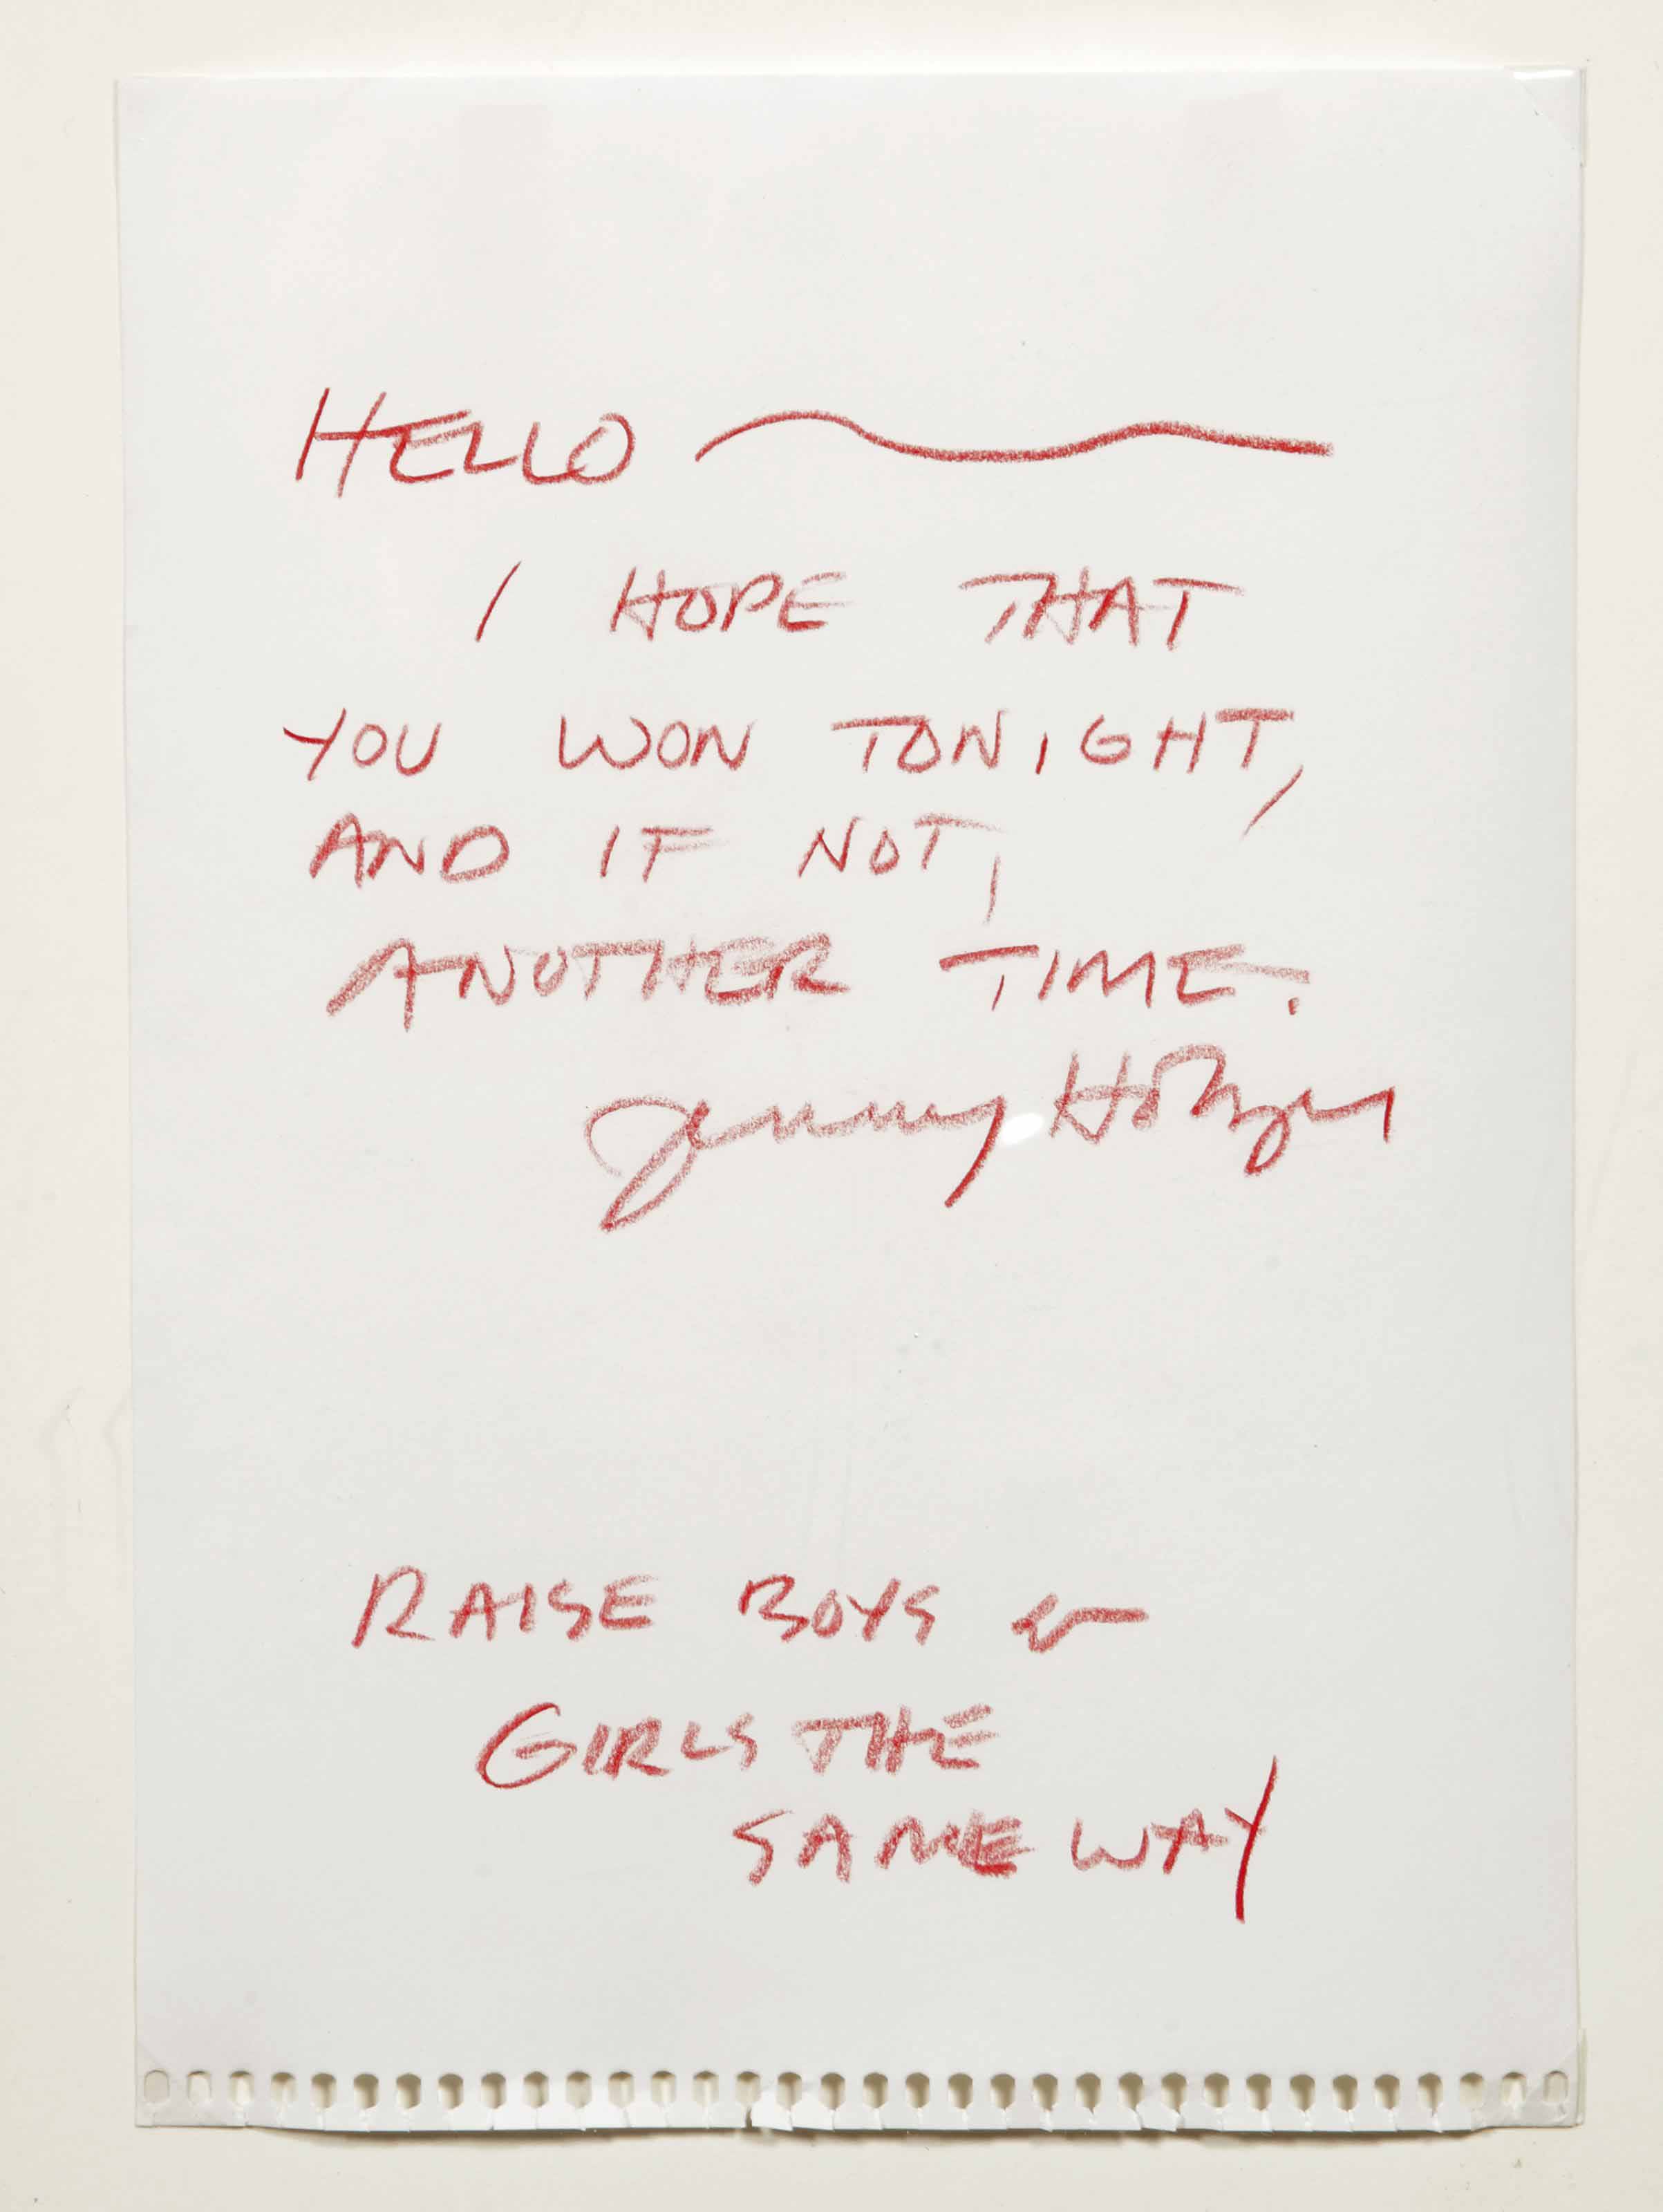 HELLO
I HOPE THAT
YOU WON TONIGHT,
AND IF NOT,
ANOTHER TIME.
Jenny Holzer
RAISE BOYS &
GIRLS THE
SAME WAY